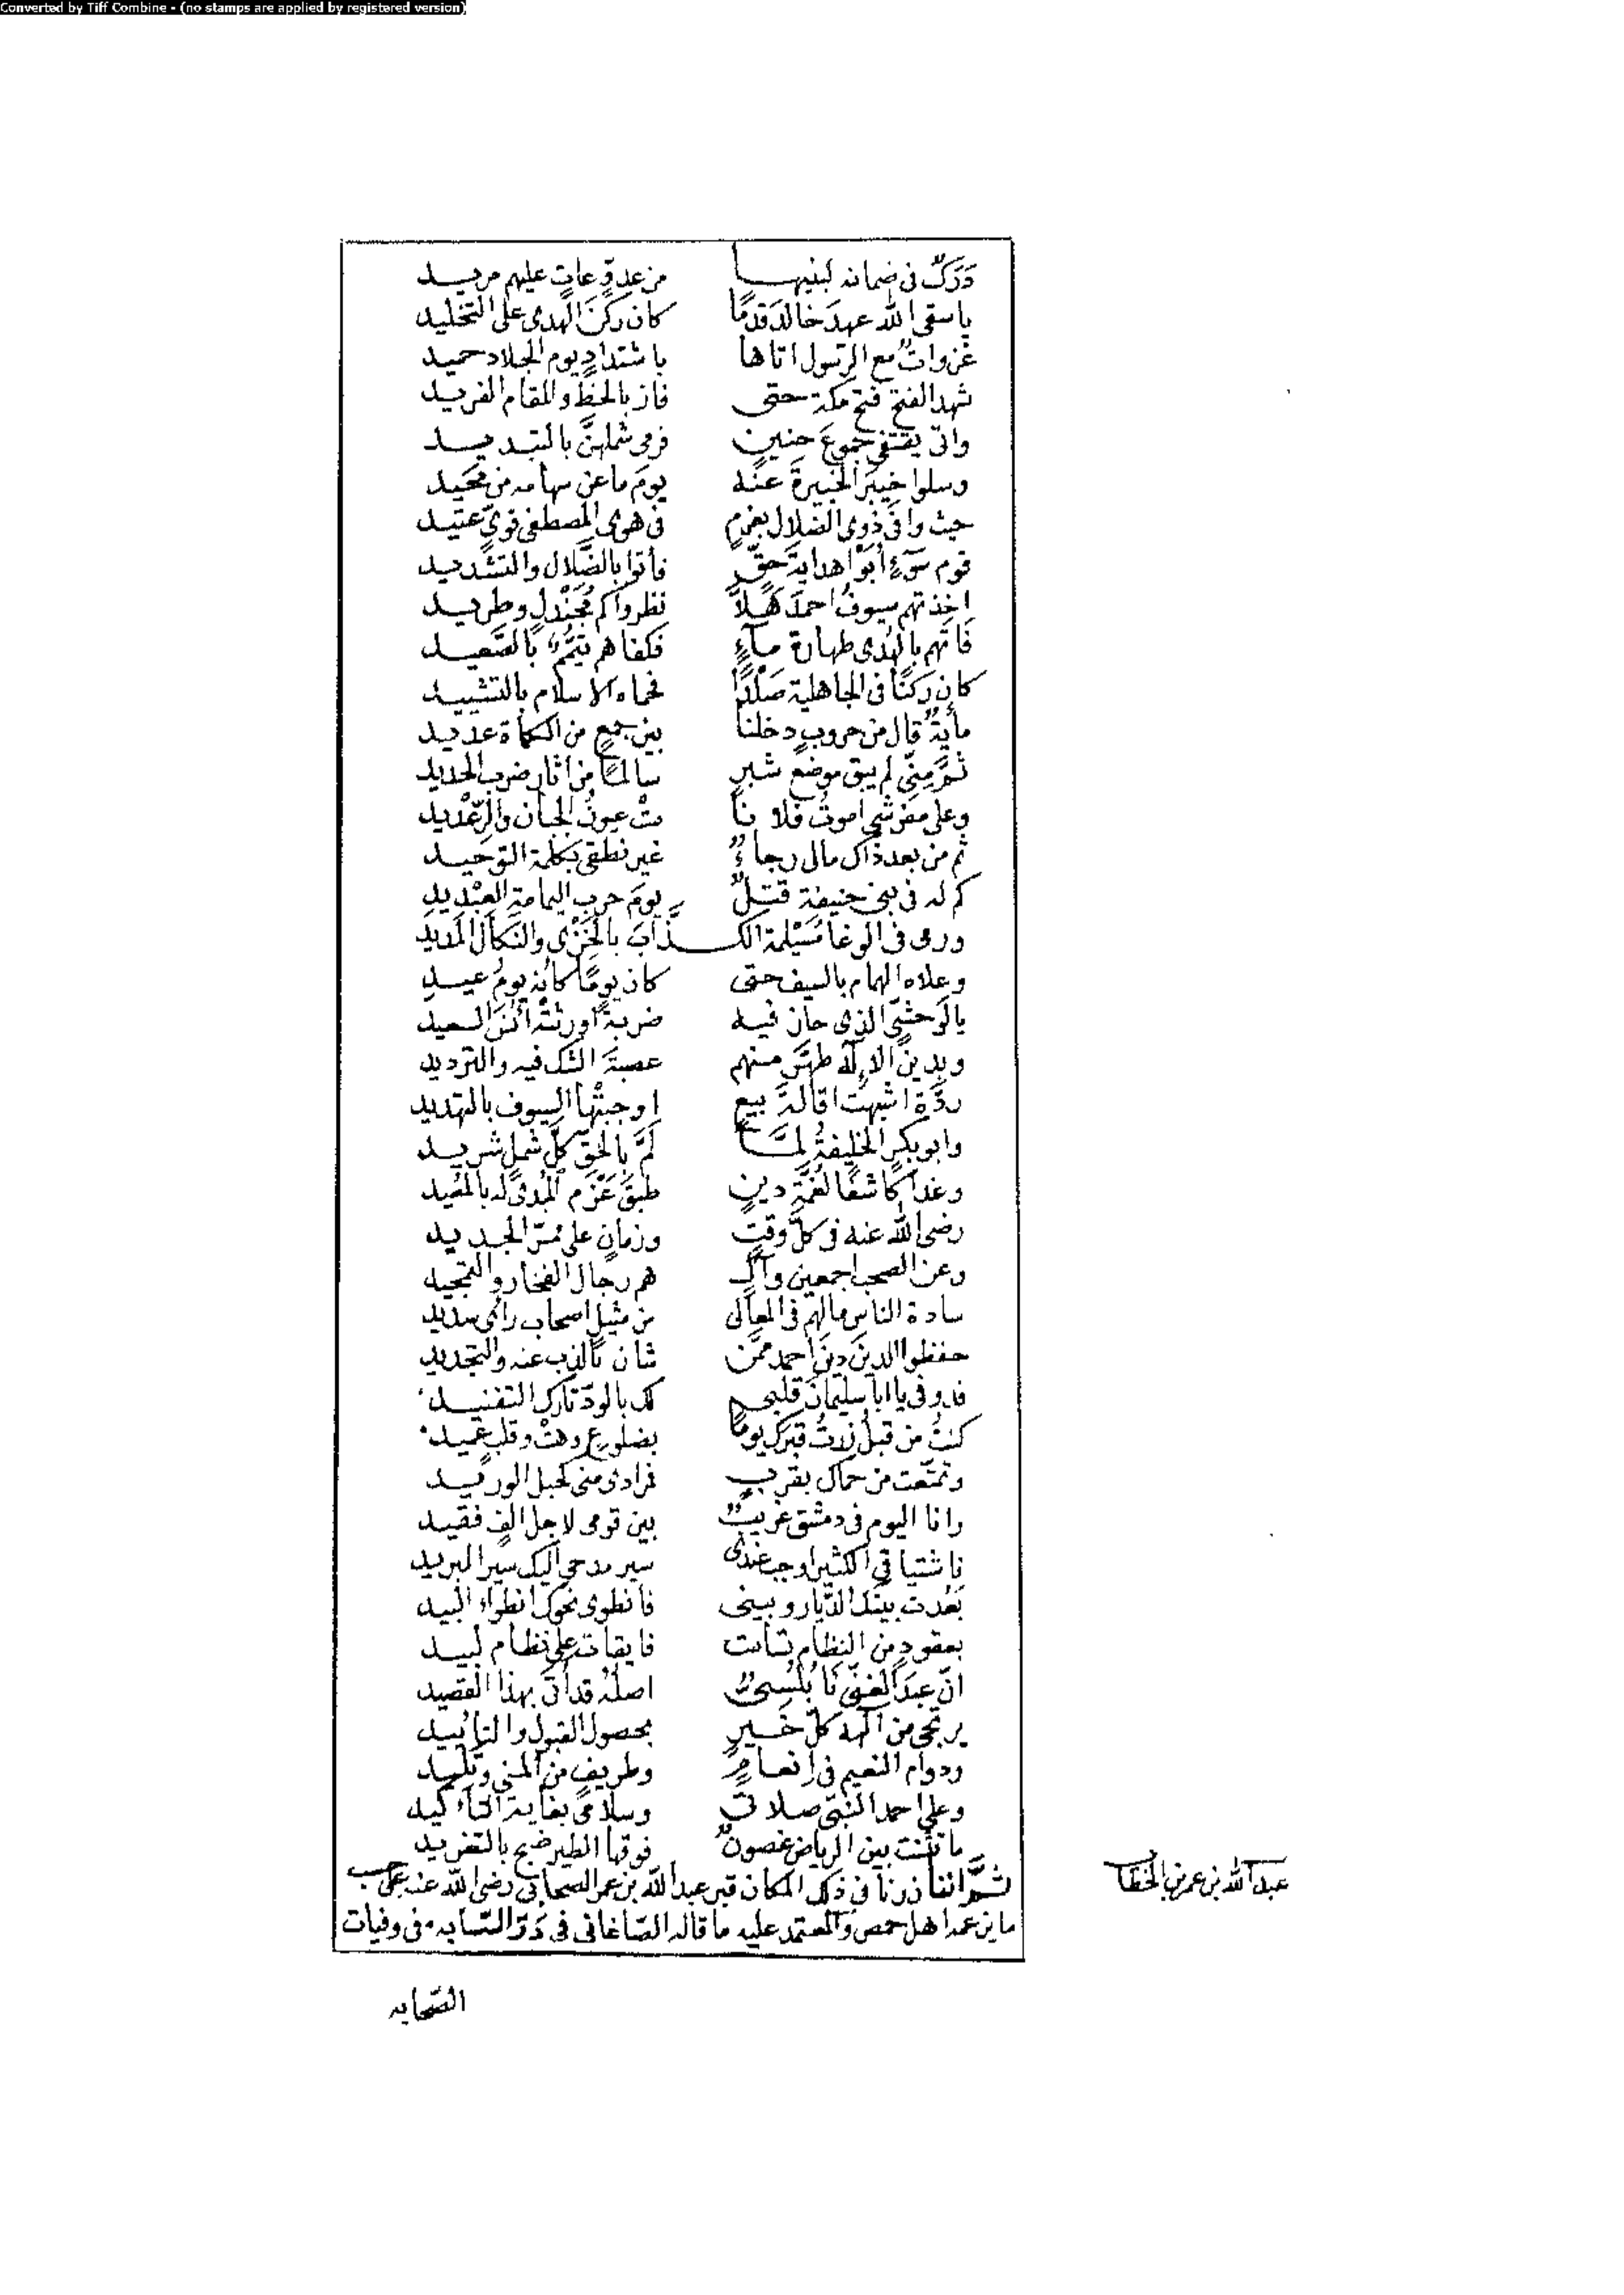 Converted by Tiff Combine - (no stamps are applied by registered version)
دَرَكٌ فى ضمانه لبنيها من عدوّ عاتٍ عليهم مريد
ياسقى الله عهدَ خالدَ قدمًا كان ركنَ الهدى على التخليد
غزواتٌ مع الرسول اتاها باشتدادٍ يوم الجلاد حميد
شهد الفتح فتح مكة حتى فاز بالحظّ والمقام الفريد
واتى يقتفى جموعَ حنينٍ فرمى شملهنّ بالتبديد
وسلوا خيبرَ الخبيرةَ عنه يومَ ما عن سهامه من محيد
حيث وافى ذوى الضلال بعزمٍ فى هوى المصطفى قوىّ عتيد
قوم سوءٍ أبوا هدايةَ حقٍّ فأتوا بالضّلال والتشديد
اخذتهم سيوفُ احمدَ هَلّا نظروا كم مُجَندلٍ وطريد
فاتهم بالهدى طهارة مآءٍ فكفاهم تيمّمٌ بالصّعيد
كان ركنًا فى الجاهلية صَلْدًا فحماه الاسلام بالتشييد
مأيةٌ قال من حروبٍ دخلنا بين جمعٍ من الكماة عديد
ثمّ منّى لم يبق موضع شبرٍ سالمًا من اثار ضرب الحديد
وعلى مفرشى اموتُ فلا نا مت عيونُ الجبان والرّعْديد
ثم من بعد ذاك مالى رجاءٌ غير نطقى بكلمة التوحيد
كم له فى بنى حنيفة قتلٌ يومَ حرب اليمامة
ورمى فى الوغا مُسَيْلمة الكـذّابَ بالخزْى والنكال المديد
وعلاه الهمام بالسيف حتى كان يومًا كأنه يومُ عيد
بالوحشىّ الذى حان فيه ضربةً اورثتْه
وبدين الاله طهّر منهم عصبةَ الشك فيه والترديد
ردّة اشبهت اقالةَ بيعٍ اوجبتْها السيوف بالتهديد
وابو بكرٍ الخليفةُ لمّا لمّ بالحقّ كلَّ شملٍ شريد
وغدا كاشفًا لغمّة دينٍ طبقَ عَزمِ
رضى الله عنه فى كلّ وقتٍ وزمانٍ على ممرّ الجديد
وعن الصحب اجمعين وآلٍ هم رجال الفخار والتمجيد
سادة الناس مالهم فى المعالى من مثيلٍ اصحاب رأى سديد
حفظوا الدينَ دينَ احمدَ ممّن شان بالذب عنه والتجديد
فدونى يا ابا سليمانَ قلبى لك بالودّ تارك التفنيد
كنتُ من قبلُ زرتُ قبرك يومًا بضلوعٍ وهتْ وقلبٍ عميد
وتمتّعت من حماك بقربٍ فمرادى منى كحبل الوريد
وانا اليوم فى دمشق غريبٌ بين قومى لاجل الفٍ فقيد
فاشتياقى الكثير اوجب عندى سير مدحى اليك سيرَ البريد
بعُدت بينك الدّيار وبينى فانطوى نحوك انطواء البيد
بعقودٍ من النظام تسامت فايقاتٍ على نظام لبيد
انّ عبدَ الغنىّ نابلسىٌّ اصلُه قد أتى بهذا القصيد
يرتجى من الهه كلَّ خيرٍ بحصول القبول والتأييد
ودوام النعيم فى إنعامٍ وطريفٍ من المنى وتليد
وعلى احمد النبىّ صلاتى وسلامى بغاية التأكيد
ما تثنت بين الرياض غصونٌ فوقها الطير ضجّ بالتغريد
ثمّ اننا زرنا فى ذلك المكان قبر عبد الله بن عمر الصحابى رضى الله عنه على حسب
ما يزعمه اهل حمص والمعتمد عليه ما قاله الصّاغانى فى دَرّ السّحابه فى وفيات
عبد الله بن عمر بن الخطاب
الصّحابه